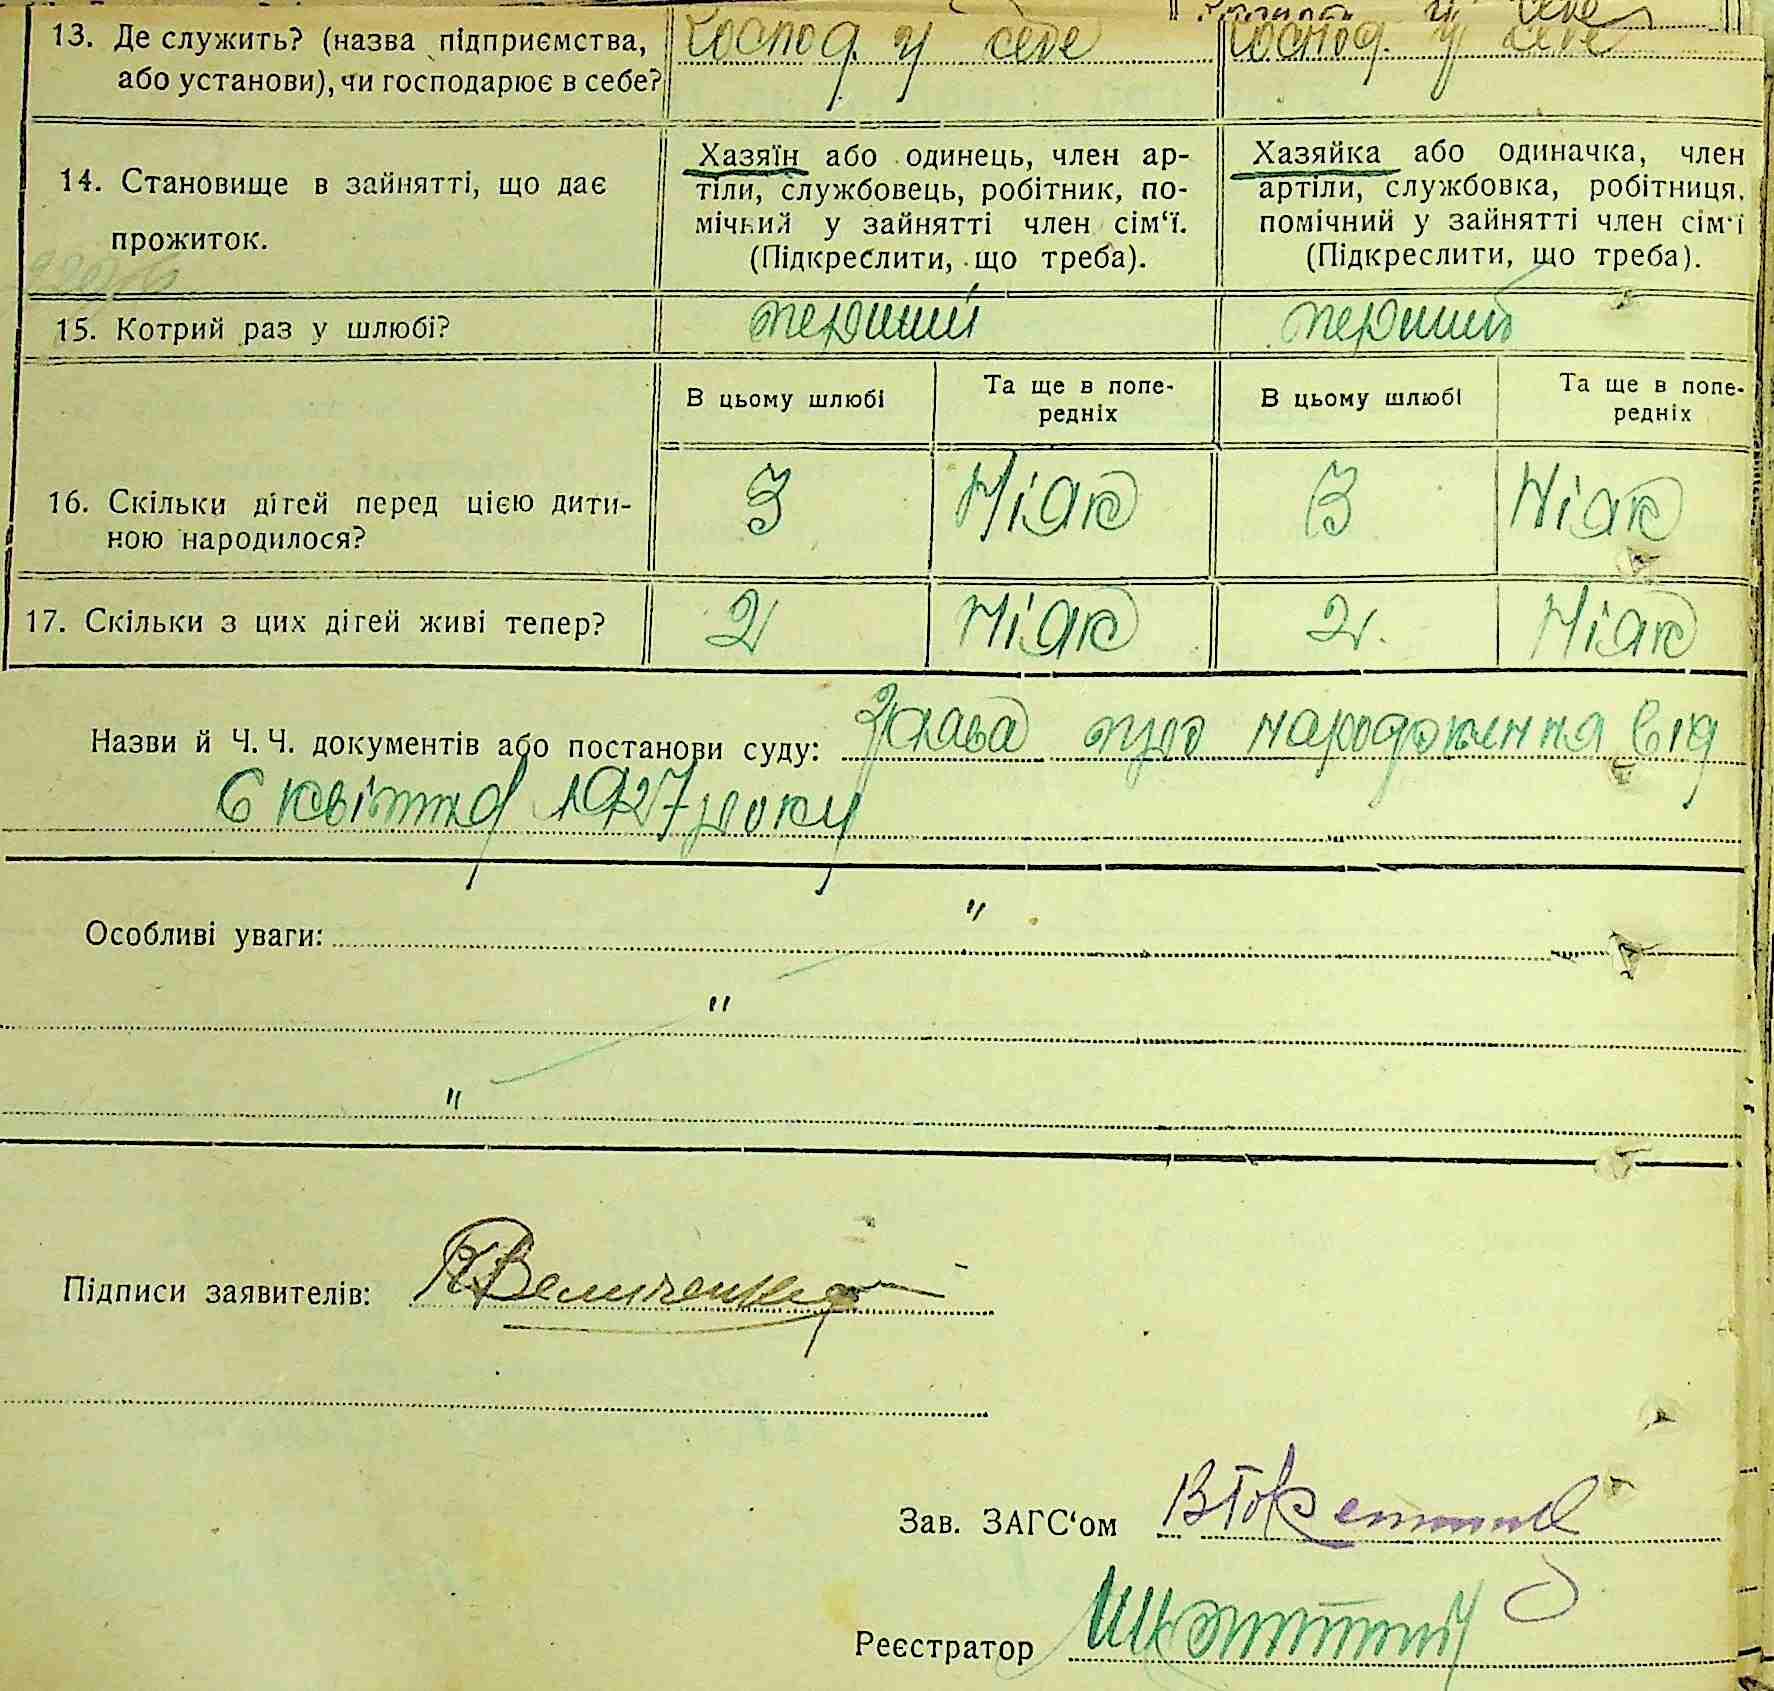 13. Де служить? (назва підприємства, або установи), чи господарює в себе? Господ. у себе Господ. у себе
14. Становище в зайнятті, що дає прожиток.
Хазяїн або одинець, член ар-
тіли, службовець, робітник, по-
мічний у зайнятті член сім‘ї.
(Підкреслити, що треба).
Хазяйка або одиначка, член
артіли, службовка, робітниця,
помічний у зайнятті член сім‘ї
(Підкреслити, що треба).
15. Котрий раз у шлюбі? перший перший
В цьому шлюбі
Та ще в попе-
редніх
В цьому шлюбі
Та ще в попе-
редніх
16. Скільки дітей перед цією дити-
ною народилося?
3 Ніяк 3 Ніяк
17. Скільки з цих дітей живі тепер? 2 Ніяк 2 Ніяк
Назви й Ч. Ч. документів або постанови суду: Заява про народження від
6 квітня 1927 року
Особливі уваги: "
"
"
Підписи заявителів:
Зав. ЗАГС‘ом
Реєстратор